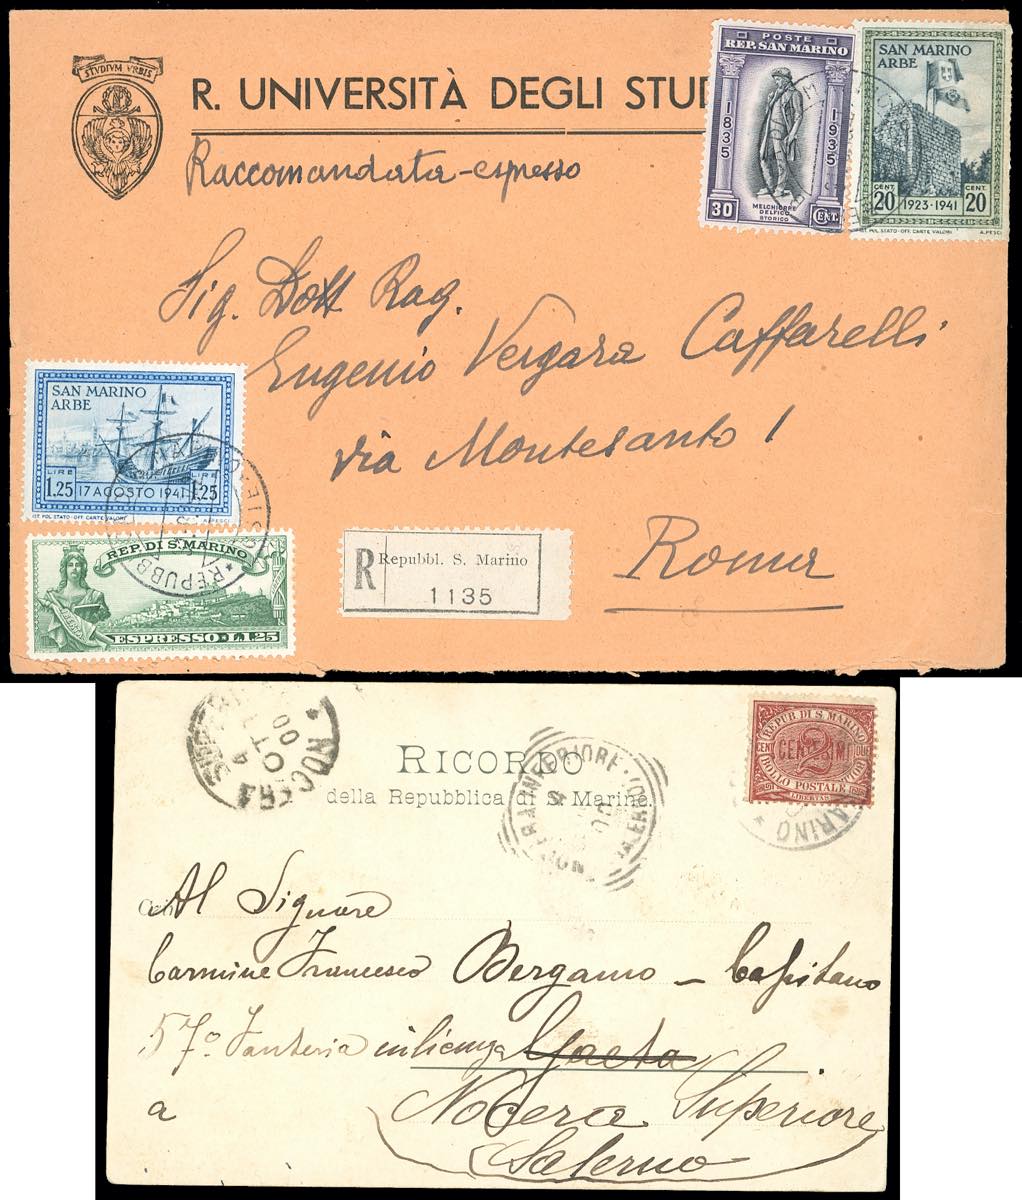 STVDIVM VRBIS
R. UNIVERSITÀ DEGLI STUD
Raccomandata-espresso
POSTE
REP. SAN MARINO
1835
1935
30
MELCHIORRE
DELFICO
STORICO
CENT.
SAN MARINO
ARBE
CENT.
20
1923-1941
CENT.
20
IST. POL. STATO-OFF. CARTE VALORI
A. PESCI
Sig. Dott Rag.
Eugenio Vergara Caffarelli
via Montesanto 1
Roma
SAN MARINO
ARBE
LIRE
1.25
17 AGOSTO 1941
LIRE
1.25
IST. POL. STATO-OFF. CARTE VALORI
A. PESCI
REP. DI S. MARINO
ESPRESSO·L.1.25
★ REPUBB
R
Repubbl. S. Marino
1135
★ NOCERA
4
OTT
00
RICORDO
della Repubblica di S. Marino.
NOCERA INFERIORE (SALERNO)
4
REPUB. DI S. MARINO
CENT.
CENTESIMI
2
DUE
BOLLO POSTALE
LIBERTAS
MARINO ★
Al Signore
Carmine Francesco Bergamo - Capitano
57º Fanteria in licenza Gaeta
a
Nocera Superiore
Salerno